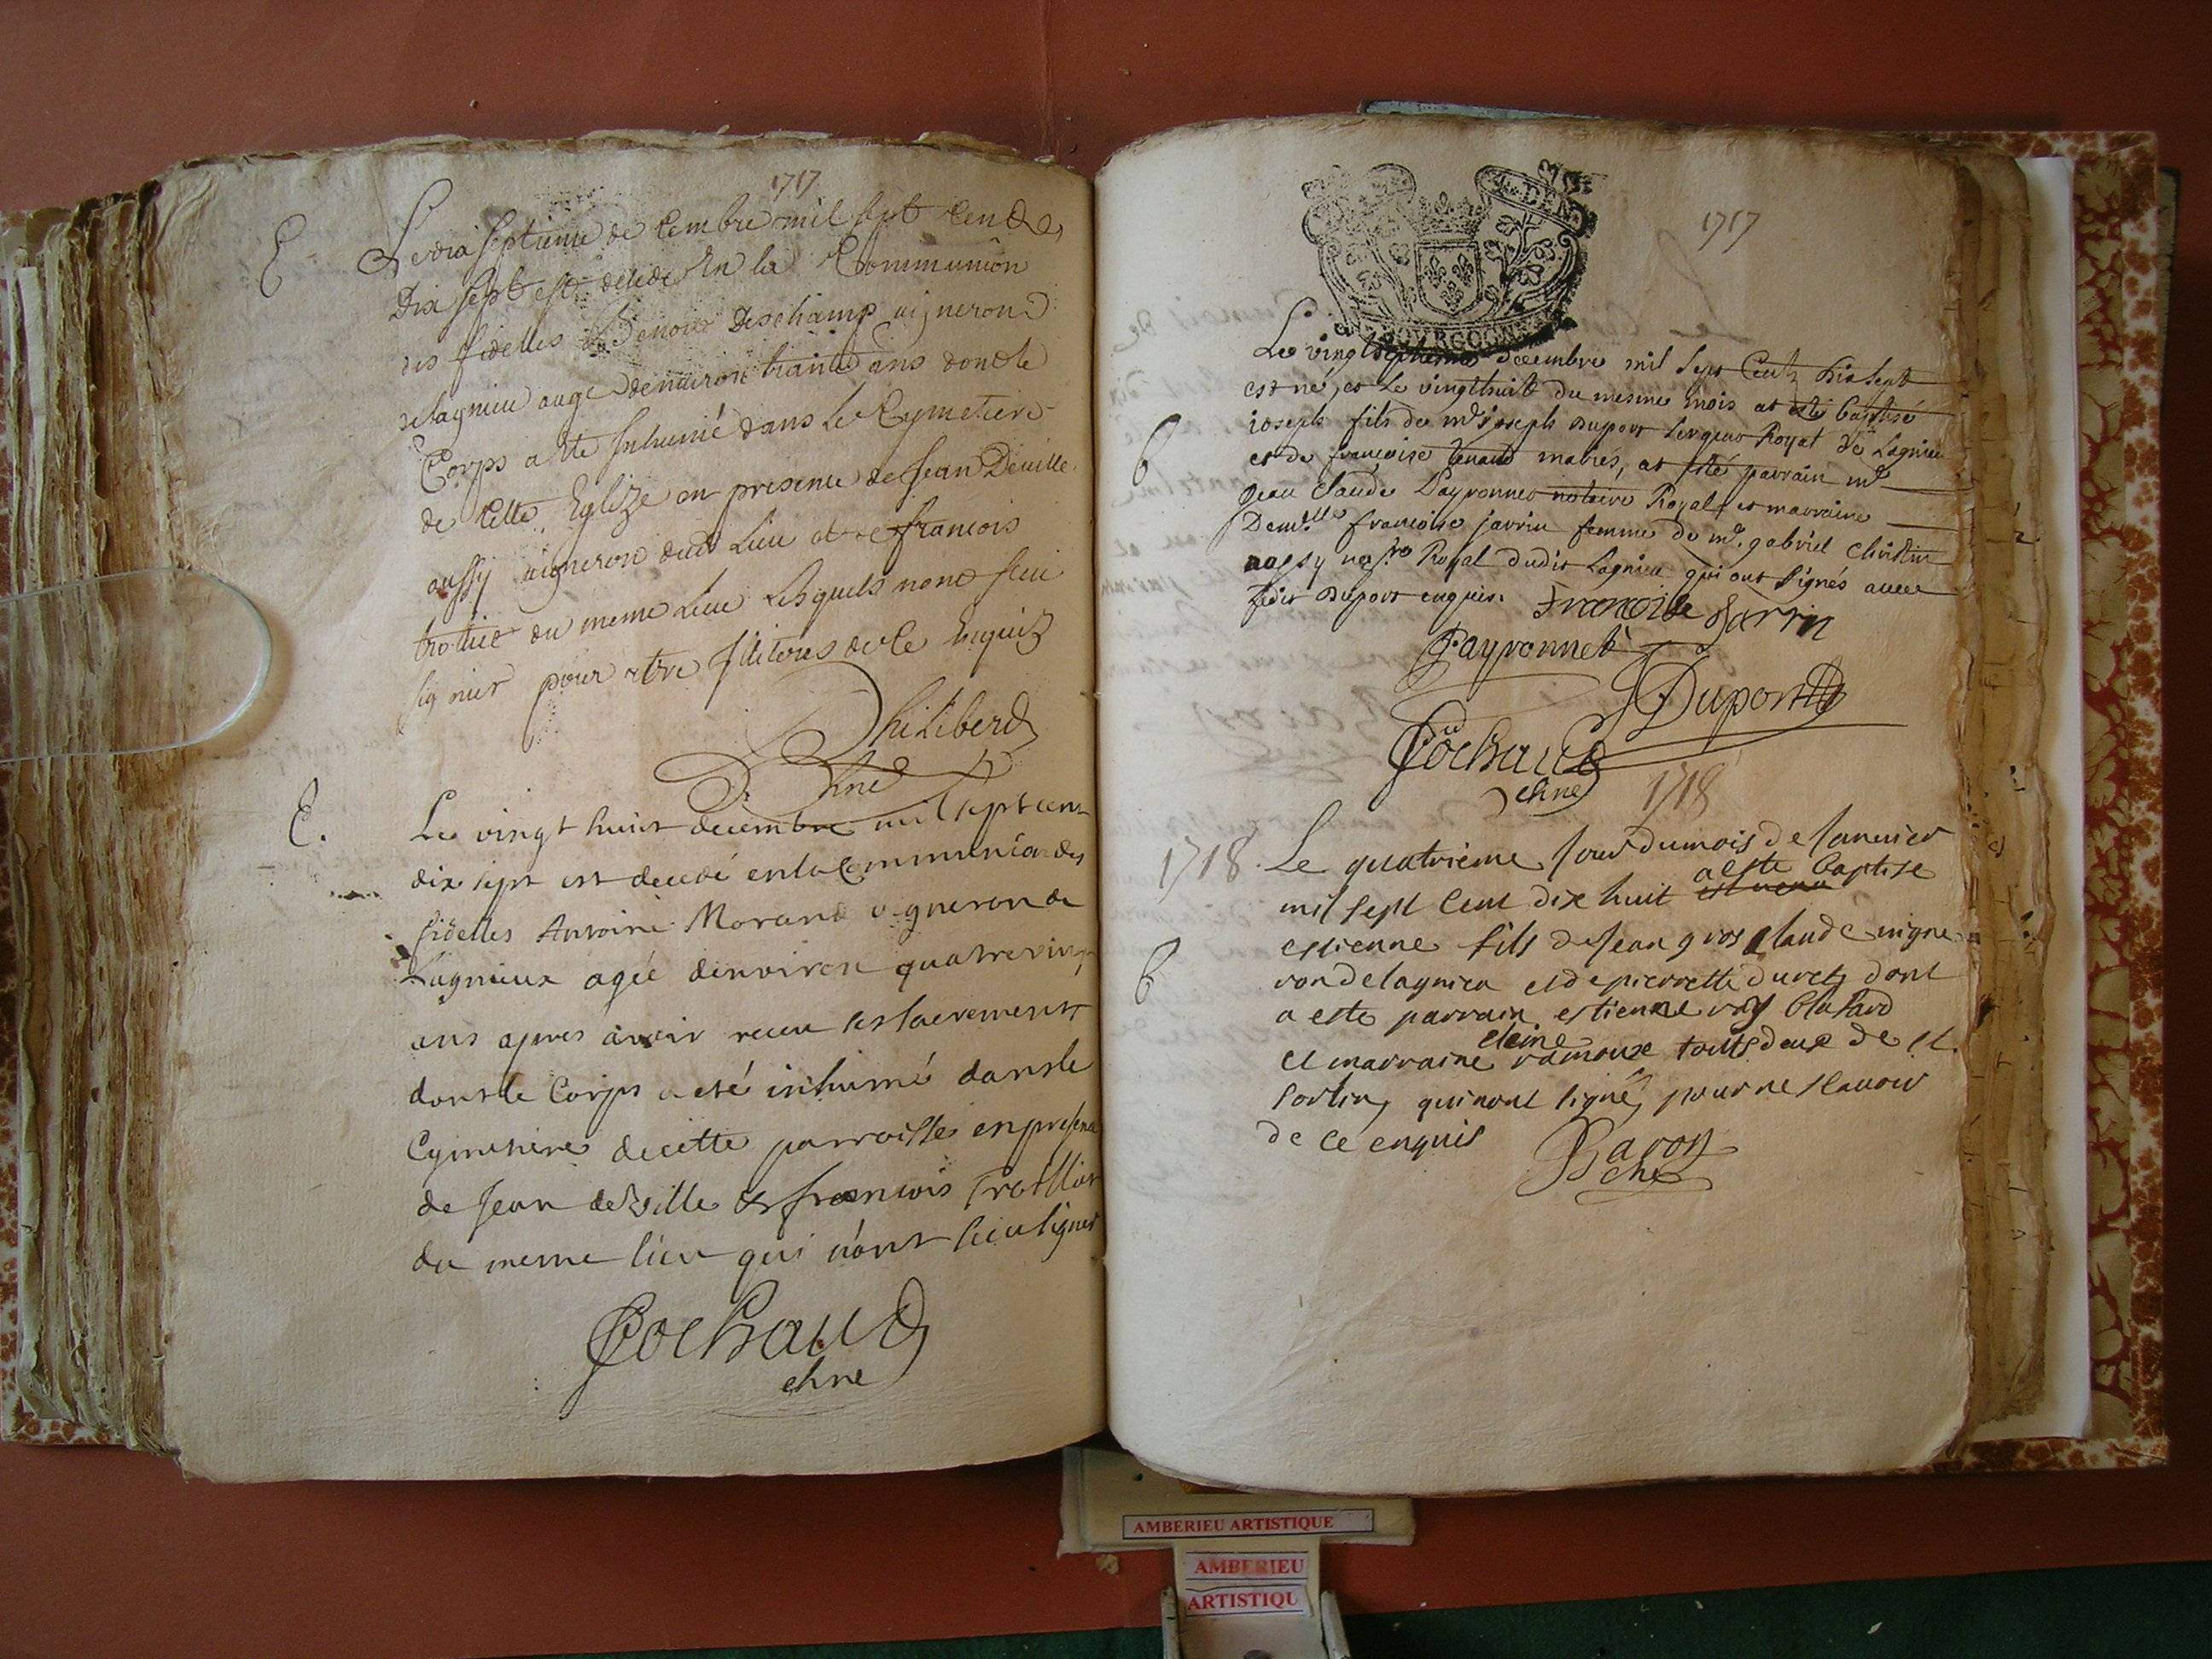 1717
E
Le dix septieme de cembre mil sept cent
Dix sept est decede En la Communion
des fidelles Benoit Deschamp vigneron
de lagnieu auge denuiron trante ans dont le
Corps a ete Inhumé dans Le Cymetiere
de Cette Eglize en presence de Jean Deuille
aussy uigneron dud Lieu et de francois
du meme Lieu Lesquels nont sceu
signer pour etre Illiteres de Ce Enquis
Philiberd
E.
Le vingt huict decembre mil sept cent
dix sept est decedé en la Communion des
fidelles Antoine Morand vigneron de
Lagnieux agée denviron quatrevingt
ans apres avoir receu les sacrements
dont le Corps a eté inhumé dans le
Cymetiere de cette parroisse en presence
de Jean deville et francois Trollier
du meme lieu qui n'ont sceu signer
Cochaud
1717
BOURGOGNE
Le vingtseptieme decembre mil sept Centz dix sept
est né, et Le vingthuit du mesme mois at esté baptisé
ioseph fils de mr Joseph Duport sergent Royal de Lagnieu
et de francoise mariés, at esté parrain mr
Jean Claude Payronnet notaire Royal et marraine
Demlle francoise jarrin femme de mr. gabriel Christin
aussy nore Royal dudit Lagnieu qui ont signés avec
Ledit Duport enquis. Francoise Jarrin
Payronnet
Duport
Cochaud
1718
1718. Le quatrieme Jour du mois de Januier
a este baptise
mil sept Cent dix huit
6
estienne fils de Jean gros Claude uigne
ron de lagnieu et de pierrette duret, dont
a este parrain estienne
et marraine ramoux touts deux de st.
Sorlin, qui nont signé, pour ne scauoir
de ce enquis
Baron
AMBERIEU ARTISTIQUE
AMBERIEU
ARTISTIQU